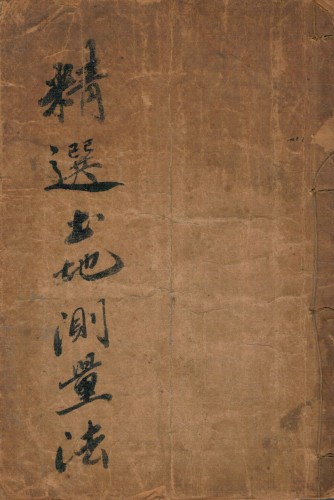 精選土地測量法